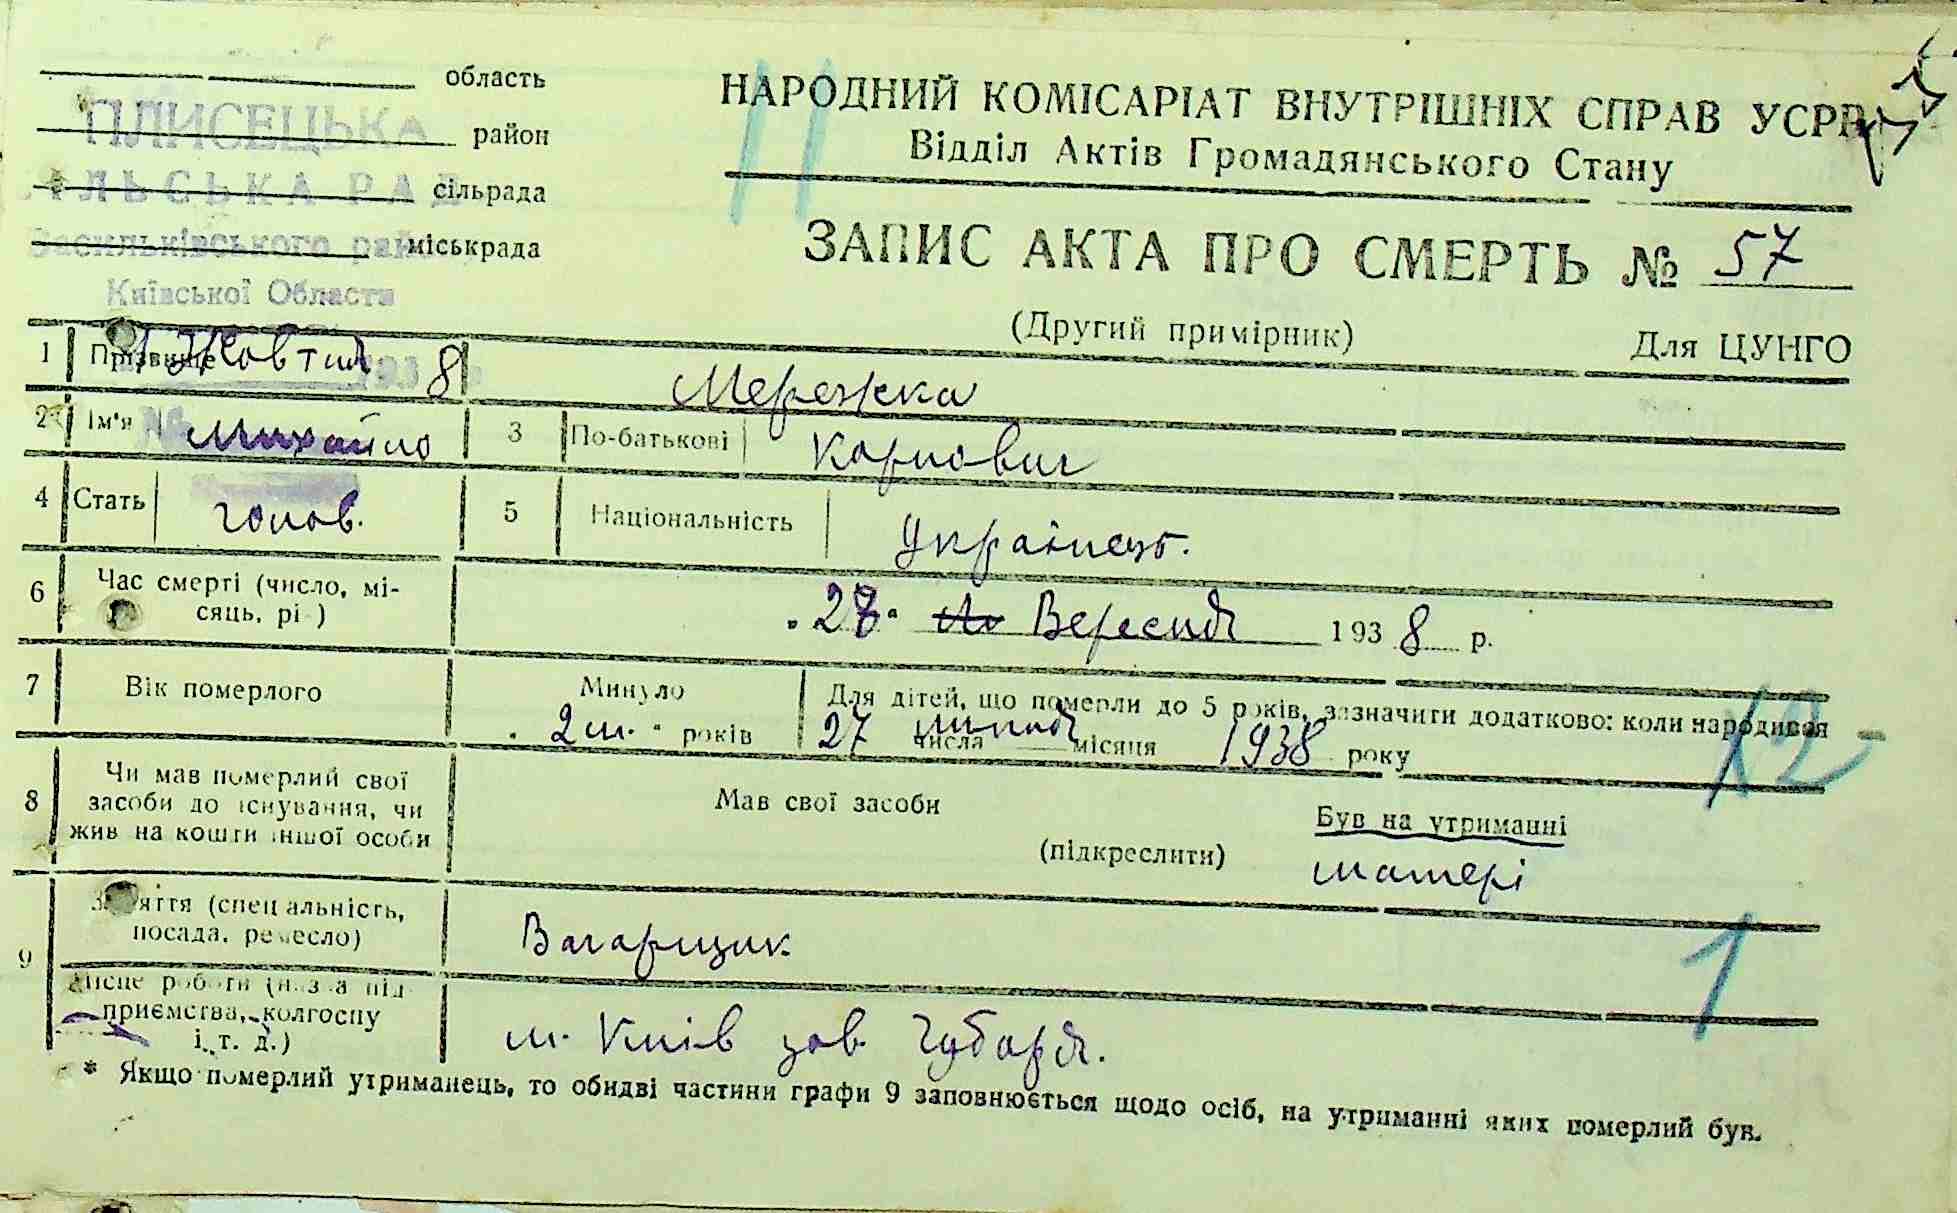 область
ПЛИСЕЦЬКА район
СІЛЬСЬКА РАДА сільрада
Васильківського району міськрада
Київської Области
Жовтня 1938
НАРОДНИЙ КОМІСАРІАТ ВНУТРІШНІХ СПРАВ УСРР
Відділ Актів Громадянського Стану
ЗАПИС АКТА ПРО СМЕРТЬ № 57
(Другий примірник) Для ЦУНГО
1 Прізвище Мережка
2 Ім'я Михайло 3 По-батькові Карпович
4 Стать голов. 5 Національність Українець.
6 Час смерті (число, мі-
сяць, рік) Вересня 1938 р.
7 Вік померлого Минуло 2 м. років Для дітей, що померли до 5 років, зазначити додатково: коли народився
27 липня числа місяця 1938 року
12
8 Чи мав померлий свої
засоби до існування, чи
жив на кошти іншої особи
Мав свої засоби (підкреслити) Був на утриманні
матері
9 Заняття (спеціальність,
посада, ремесло) Вагарщик
1
Місце роботи (назва під-
приємства, колгоспу
і т. д.) м. Київ зав. Чубаря.
* Якщо померлий утриманець, то обидві частини графи 9 заповнюється щодо осіб, на утриманні яких померлий був.